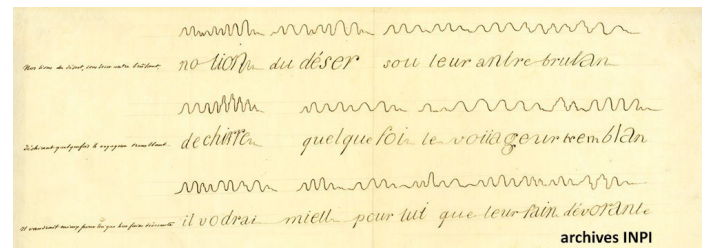 Nos lions du désert, sous leur antre brûlant,
no lionn du déser sou leur antre brulan
déchirent quelquefois le voyageur tremblant.
dechirren quelquefoi le voüageur tremblan
il vaudrait mieux pour lui que leur faim dévorante
il vodrai mieu pour lui que leur fain dévorante
archives INPI